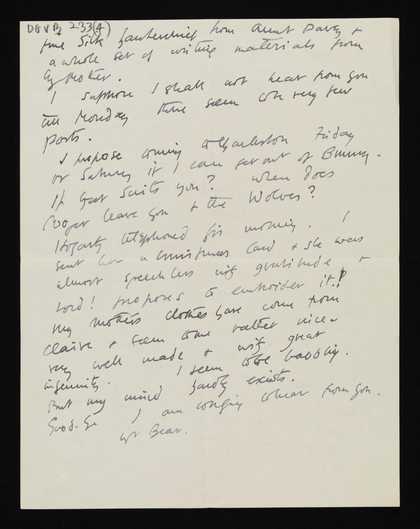 fine silk handkerchief from Aunt Daisy &
a whole set of writing materials from
by Mother.
I suppose I shall not hear from you
till Monday there seem to be very few
posts.
I propose coming to Charleston Friday
or Saturday if I can get out of Bunny.
If that suits you? When does
Roger leave you & the Wolves?
Hogarty telephoned this morning. I
sent her a Christmas card & she was
almost speechless with gratitude &
Lord! proposes to embroider it!
My mothers clothes have come from
Claire & seem to me rather nice
very well made & with great
ingenuity. I seem to be babbling.
But my mind hardly exists.
Good-bye I am longing to hear from you.
yr Bear.